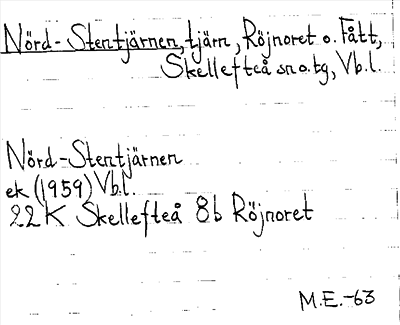 Nörd-Stentjärnen, tjärn, Röjnoret o. Fått,
Skellefteå sn o. tg, Vb.l.
Nörd-Stentjärnen
ek (1959) Vb.l.
22 K Skellefteå 8b Röjnoret
M.E.-63